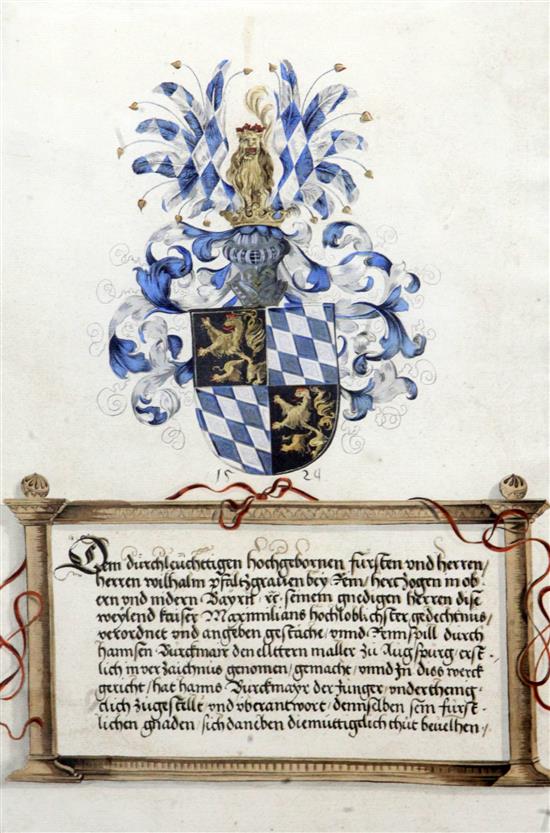 1524
Dem durchleuchttigen hochgebornen fürsten vnd herren/
herren wilhalm pfaltzgrauen bey Rein/ hertzogen in ob-
ern vnd nidern Bayrn ꝛc. seinem gnedigen herren dise
weylend kaiser Maximilians hochloblichster gedechtnus/
verordnet vnd angeben gestäche/ vnnd Rennspill durch
hannsen Burckmair den elltern maller zu Augspurg/ erst-
lich in verzaichnus genomen/ gemacht/ vnnd in diss werck
gericht/ hat hanns Burckmayr der Junger/ vnderthenig-
clich zugestellt vnd vberantwort/ dennselben sein fürst-
lichen gnaden/ sich daneben diemüttigclich thůt beuelhen/